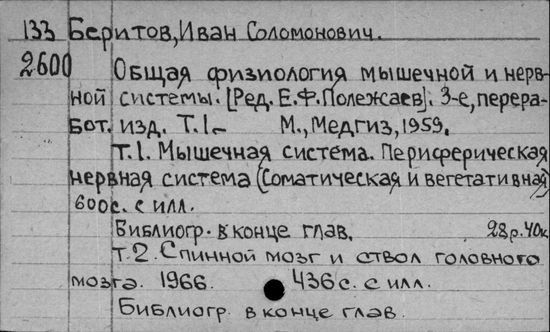 133 Беритов, Иван Соломонович.
2600 Общая физиология мышечной и нерв-
ной системы. [Ред. Е.Ф. Полежаев]. 3-е, перера-
бот. изд. Т.1.- М., Медгиз, 1959.
Т.1. Мышечная система. Периферическая
нервная система (Соматическая и вегетативная)
600с. с илл.
Библиогр. в конце глав. 28р.40к
Т.2. Спинной мозг и ствол головного
мозга. 1966. 436с. с илл.
Библиогр в конце глав.